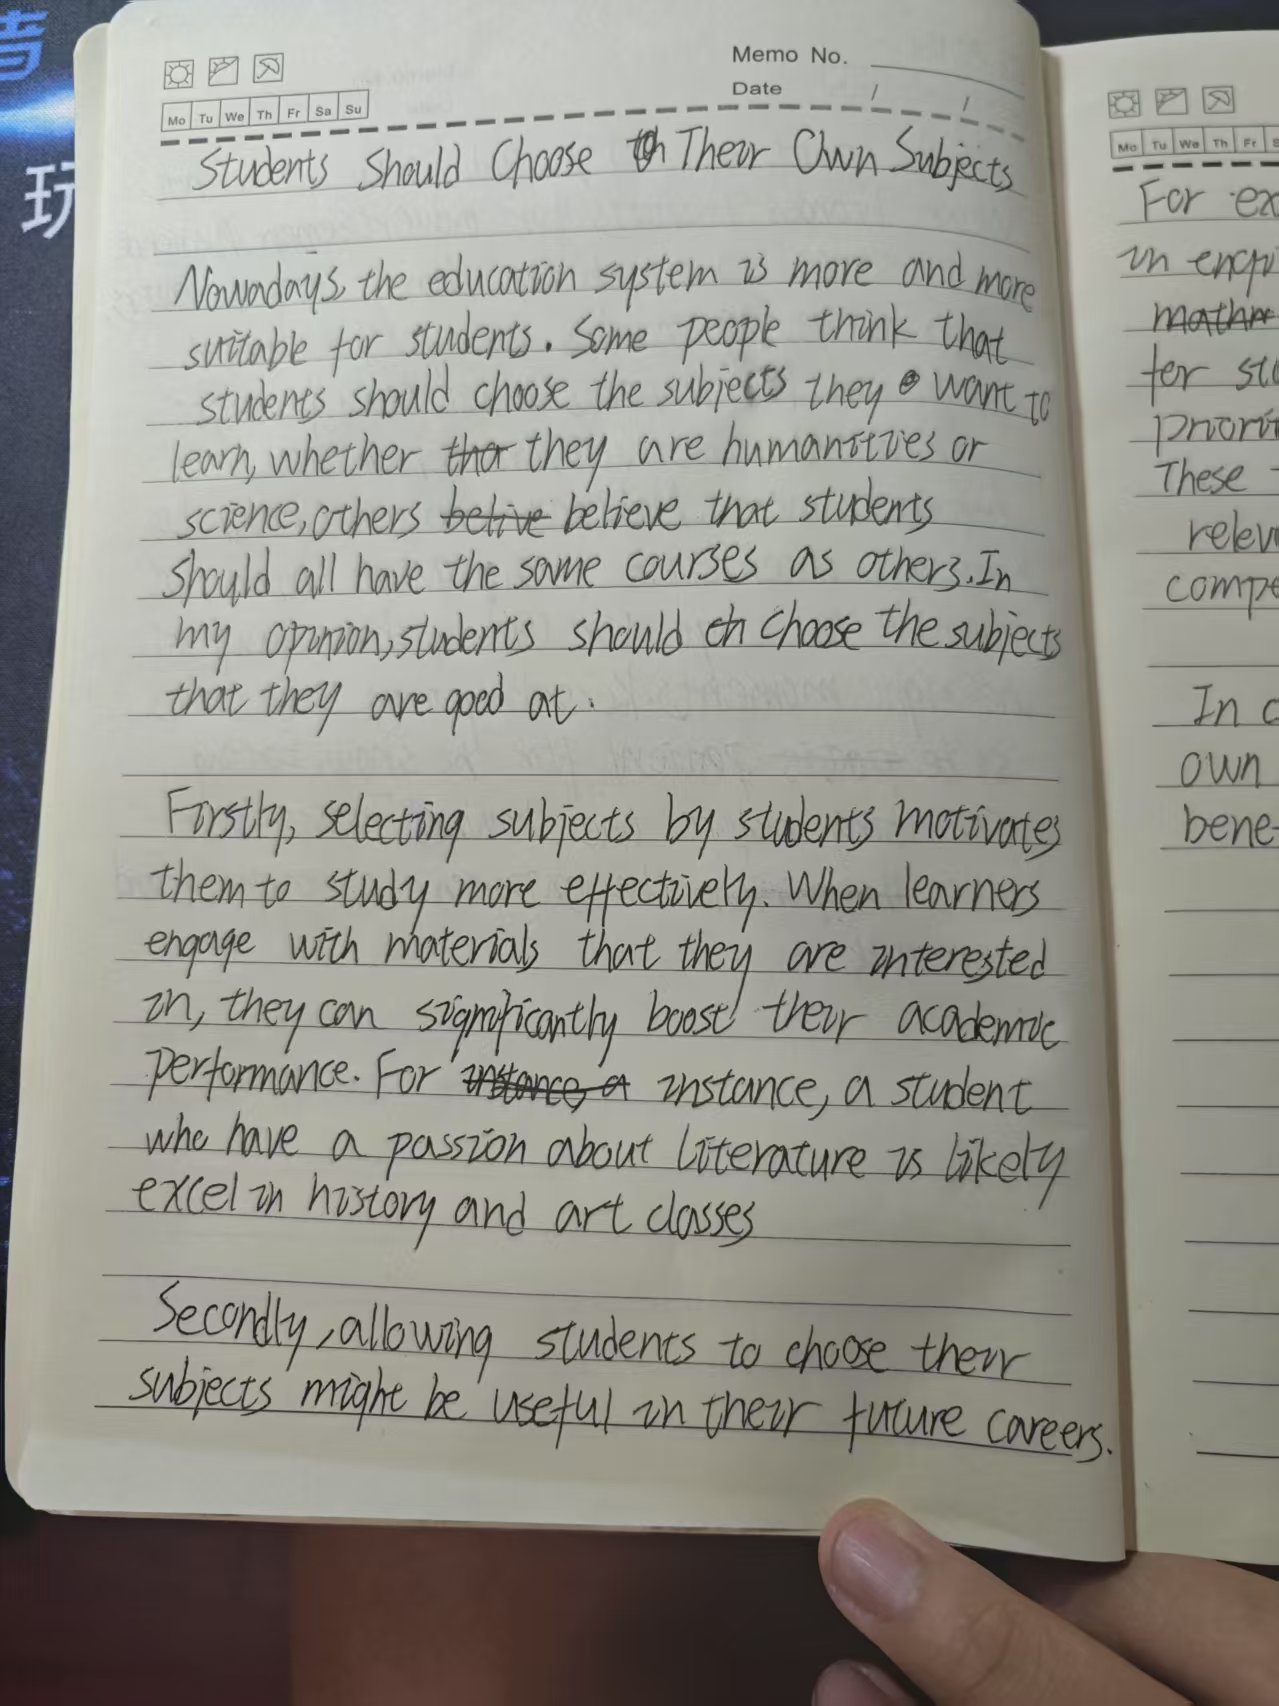 玩
Memo No.
Date / /
Mo Tu We Th Fr Sa Su
Students Should Choose Their Own Subjects
Nowadays, the education system is more and more
suitable for students. Some people think that
students should choose the subjects they want to
learn, whether they are humanities or
science, others believe that students
should all have the same courses as others. In
my opinion, students should choose the subjects
that they are good at.
Firstly, selecting subjects by students motivates
them to study more effectively. When learners
engage with materials that they are interested
in, they can significantly boost their academic
performance. For instance, a student
who have a passion about literature is likely
excel in history and art classes
Secondly, allowing students to choose their
subjects might be useful in their future careers.
Mo Tu We Th Fr
For
in
for
priori
These
relev
comp
In
own
bene